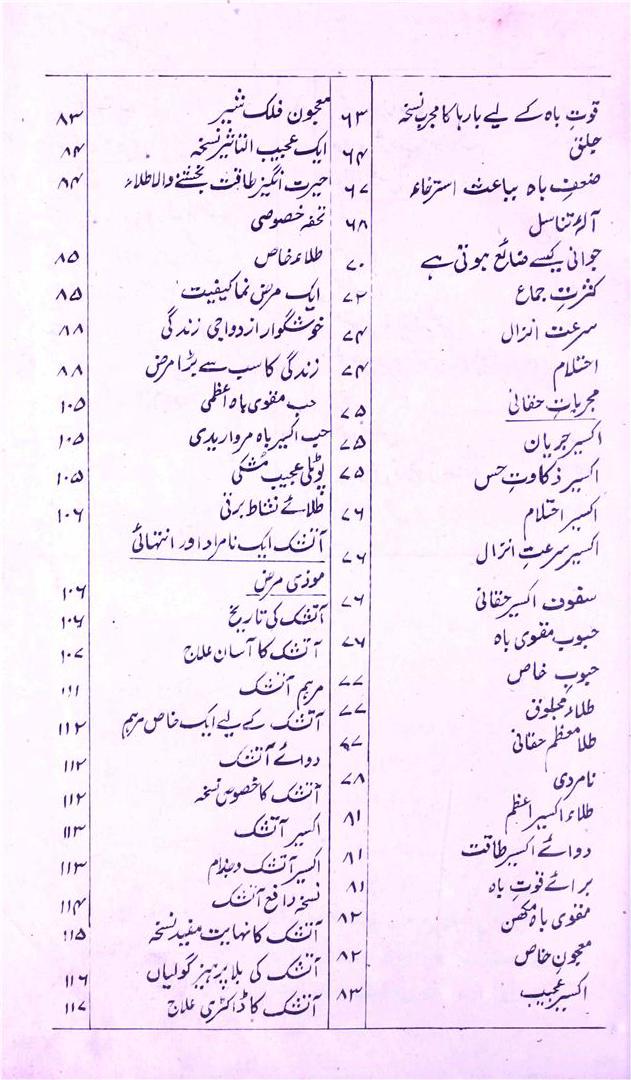 قوتِ باہ کے لیے بارہا کا مجرب نسخہ ۶۳
جلق ۶۴
ضعفِ باہ بباعث استرخاء ۶۷
آلۂ تناسل ۶۸
جوانی کیسے ضائع ہوتی ہے ۷۰
کثرتِ جماع ۷۲
سرعت انزال ۷۴
احتلام ۷۴
مجرباتِ حقانی ۷۵
اکسیر جریان ۷۵
اکسیر ذکاوتِ حس ۷۵
اکسیر احتلام ۷۶
اکسیر سرعتِ انزال ۷۶
سفوف اکسیر حقانی ۷۶
حبوب مقوی باہ ۷۶
حبوبِ خاص ۷۷
طلاء مجلوق ۷۷
طلا معظم حقانی ۷۷
نامردی ۷۸
طلاء اکسیر اعظم ۸۱
دوائے اکسیر طاقت ۸۱
برائے قوتِ باہ ۸۱
مقوی باہ مکھن ۸۲
معجونِ خاص ۸۲
اکسیر عجیب ۸۳
معجون فلک شیر ۸۳
ایک عجیب التاثیر نسخہ ۸۴
حیرت انگیز طاقت بخشنے والا طلاء ۸۴
تحفہ خصوصی
طلاء خاص ۸۵
ایک مرض نما کیفیت ۸۵
خوشگوار ازدواجی زندگی ۸۸
زندگی کا سب سے بڑا مرض ۸۸
حب مقوی باہ اعظمی ۱۰۵
حب اکسیر باہ مرواریدی ۱۰۵
پوٹلی عجیب مشکی ۱۰۵
طلائے نشاط برقی ۱۰۶
آتشک ایک نامراد اور انتہائی
موذی مرض ۱۰۶
آتشک کی تاریخ ۱۰۶
آتشک کا آسان علاج ۱۰۷
مرہم آتشک ۱۱۱
آتشک کے لیے ایک خاص مرہم ۱۱۲
دوائے آتشک ۱۱۲
آتشک کا خصوصی نسخہ ۱۱۲
اکسیر آتشک ۱۱۳
اکسیر آتشک و جذام ۱۱۳
نسخہ دافع آتشک ۱۱۴
آتشک کا نہایت مفید نسخہ ۱۱۵
آتشک کی بلا پرہیز گولیاں ۱۱۶
آتشک کا ڈاکٹری علاج ۱۱۷